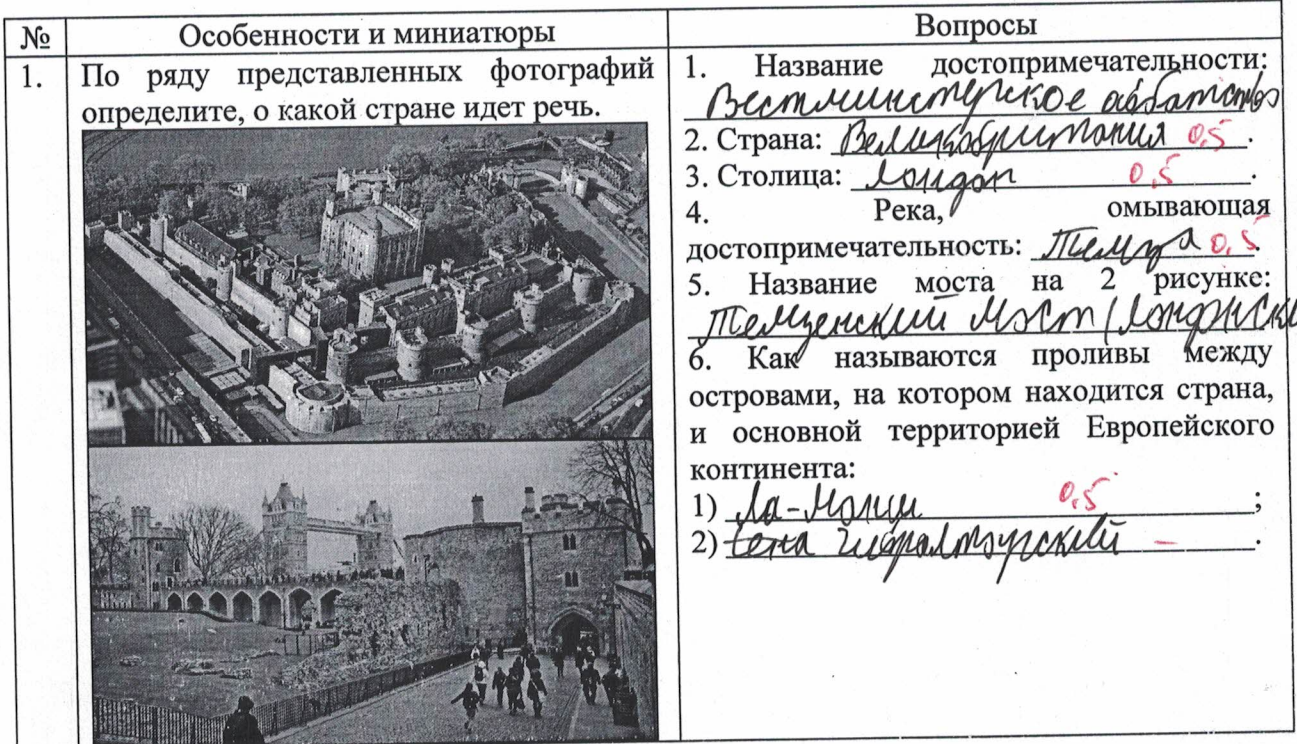 № Особенности и миниатюры Вопросы
1. По ряду представленных фотографий
определите, о какой стране идет речь.
1. Название достопримечательности:
Вестминстерское аббатство
2. Страна: Великобритания 0,5.
3. Столица: Лондон 0,5.
4. Река, омывающая
достопримечательность: Темза 0,5.
5. Название моста на 2 рисунке:
Темзенский мост (
6. Как называются проливы между
островами, на котором находится страна,
и основной территорией Европейского
континента:
1) Ла-Манш 0,5;
2) Гибралтарский –.